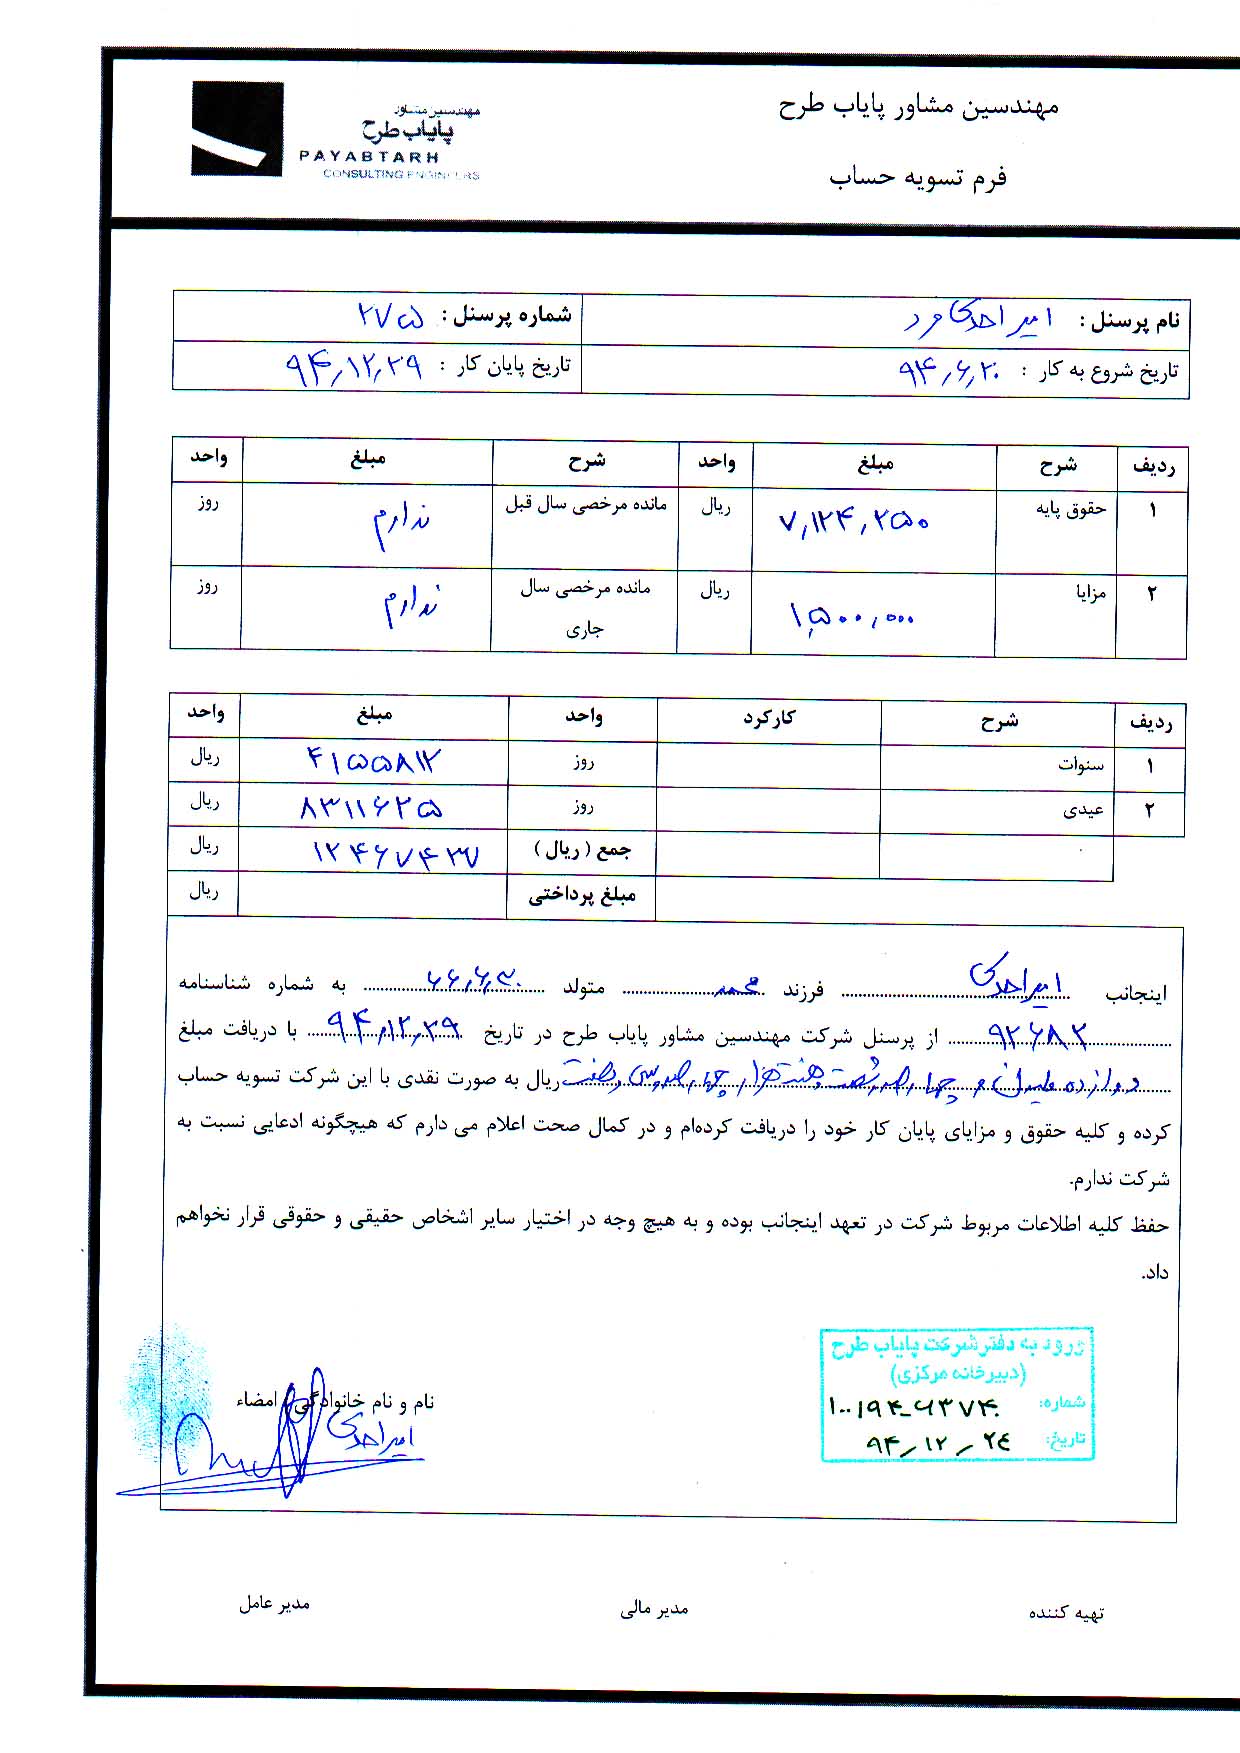 مهندسین مشاور پایاب طرح
مهندسین مشاور
پایاب طرح
PAYABTARH
CONSULTING ENGINEERS
فرم تسویه حساب
نام پرسنل : امیر احمدی فرد شماره پرسنل : ۲۷۵
تاریخ شروع به کار : ۹۴,۶,۲۰ تاریخ پایان کار : ۹۴,۱۲,۲۹
ردیف شرح مبلغ واحد شرح مبلغ واحد
۱ حقوق پایه ۷,۱۲۴,۲۵۰ ریال مانده مرخصی سال قبل ندارم روز
۲ مزایا ۱,۵۰۰,۰۰۰ ریال مانده مرخصی سال جاری ندارم روز
ردیف شرح کارکرد واحد مبلغ واحد
۱ سنوات روز ۴۱۵۵۸۱۲ ریال
۲ عیدی روز ۸۳۱۱۶۲۵ ریال
جمع ( ریال ) ۱۲۴۶۷۴۳۷ ریال
مبلغ پرداختی ریال
اینجانب امیر احمدی فرزند محمد متولد ۶۶,۶,۳۰ به شماره شناسنامه
۹۲۶۸۲ از پرسنل شرکت مهندسین مشاور پایاب طرح در تاریخ ۹۴,۱۲,۲۹ با دریافت مبلغ
دوازده میلیون و چهارصد شصت هفت هزار چهارصد سی و هفت ریال به صورت نقدی با این شرکت تسویه حساب
کرده و کلیه حقوق و مزایای پایان کار خود را دریافت کرده‌ام و در کمال صحت اعلام می دارم که هیچگونه ادعایی نسبت به
شرکت ندارم.
حفظ کلیه اطلاعات مربوط شرکت در تعهد اینجانب بوده و به هیچ وجه در اختیار سایر اشخاص حقیقی و حقوقی قرار نخواهم
داد.
ورود به دفتر شرکت پایاب طرح
(دبیرخانه مرکزی)
شماره:
تاریخ: ۹۴/۱۲/۲۴
نام و نام خانوادگی / امضاء
امیر احمدی
تهیه کننده مدیر مالی مدیر عامل